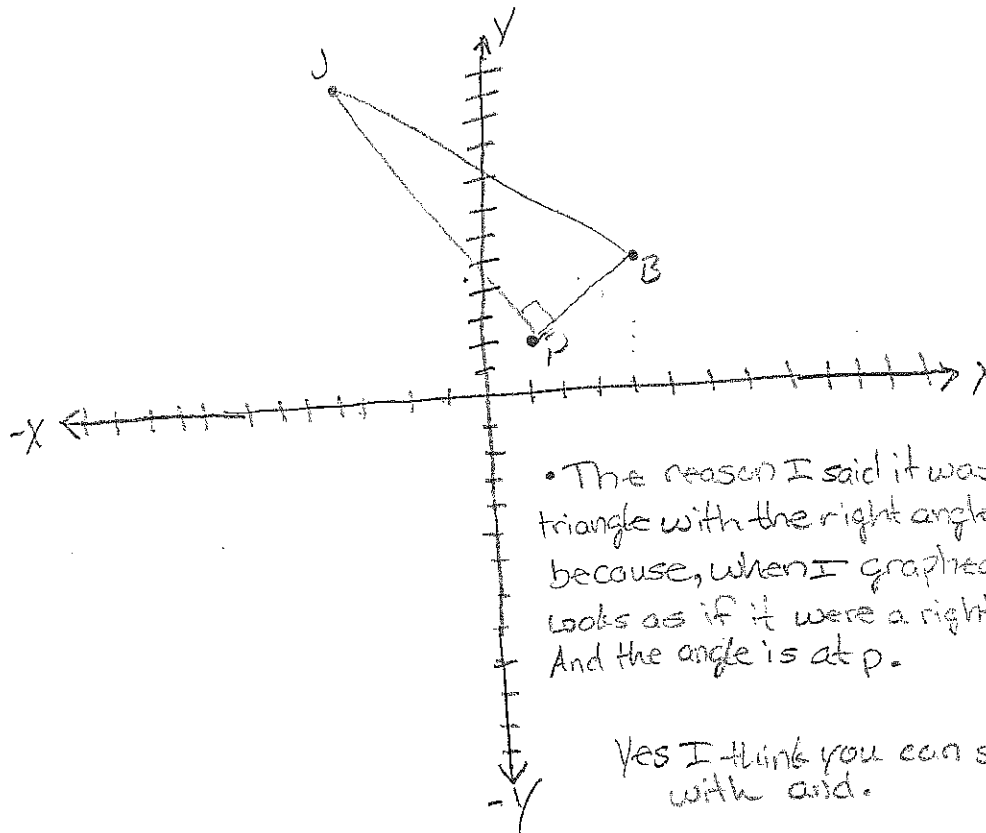 Y
J
B
P
X
-X
• The reason I said it was
triangle with the right angle
because, when I graphed
looks as if it were a right
And the angle is at p.
Yes I think you can s
with and.
-Y